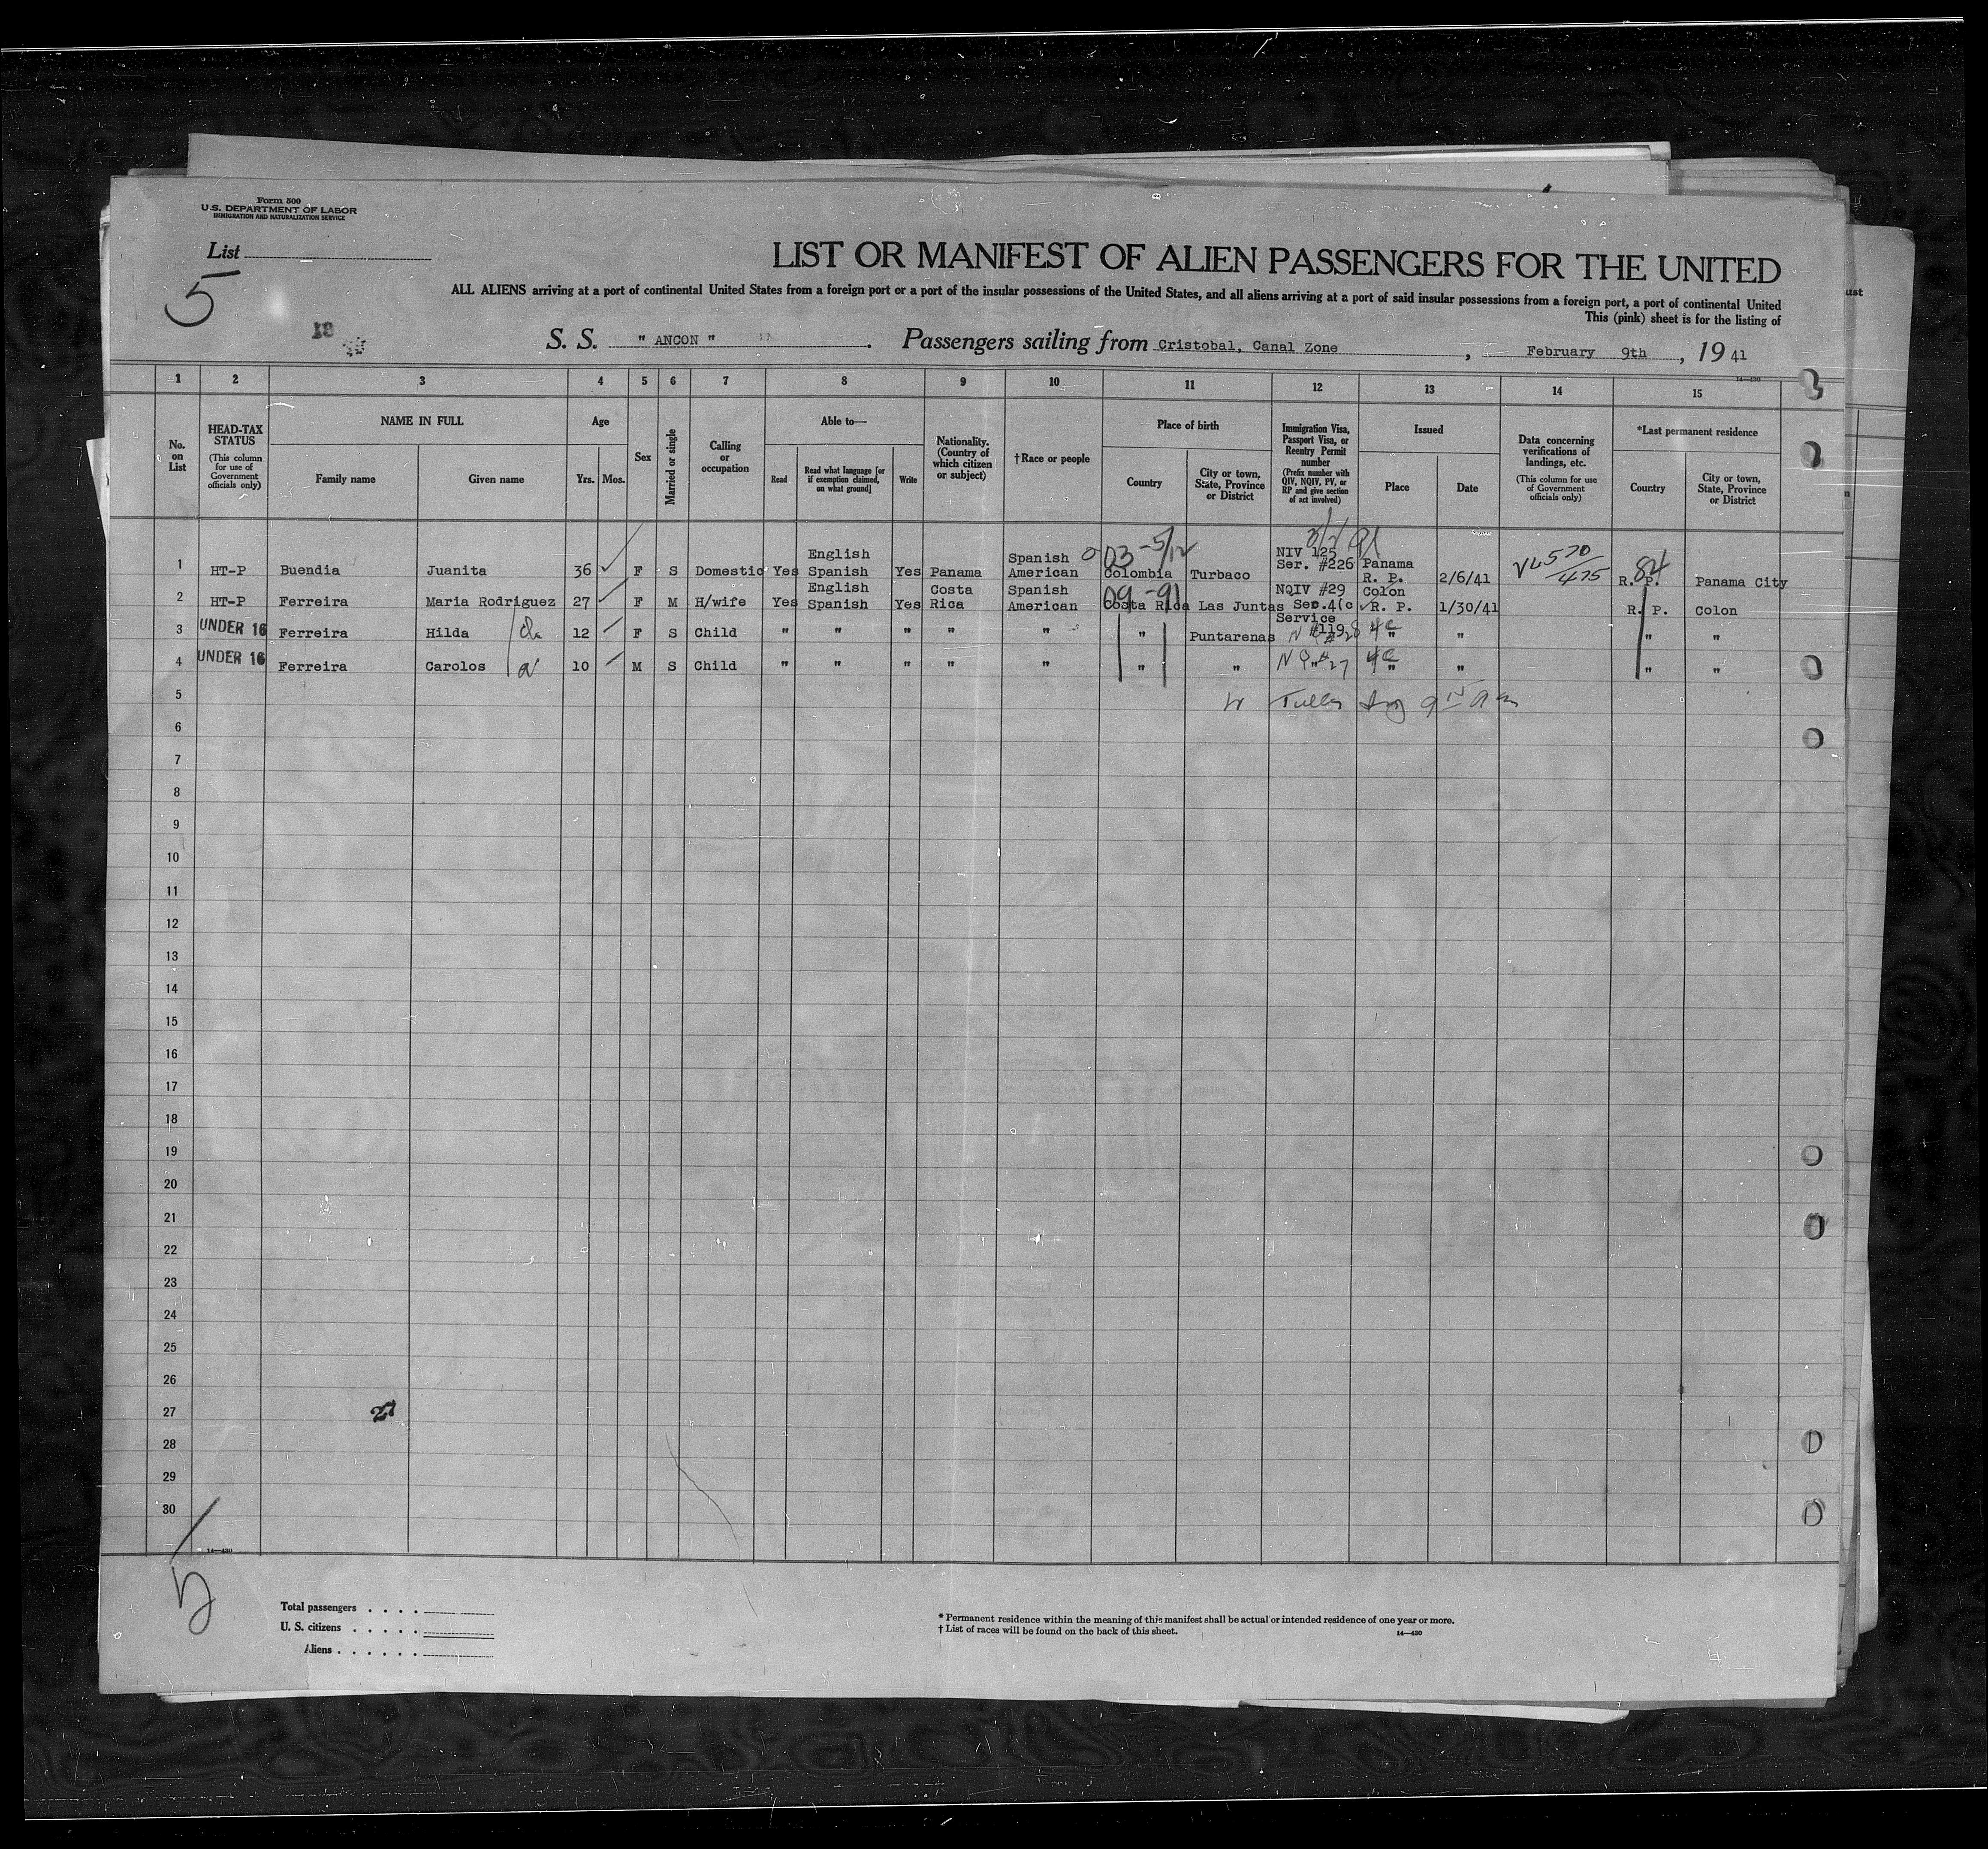 Form 500
U.S. DEPARTMENT OF LABOR
IMMIGRATION AND NATURALIZATION SERVICE
List
5
LIST OR MANIFEST OF ALIEN PASSENGERS FOR THE UNITED
ALL ALIENS arriving at a port of continental United States from a foreign port or a port of the insular possessions of the United States, and all aliens arriving at a port of said insular possessions from a foreign port, a port of continental United
This (pink) sheet is for the listing of
18
S. S. " ANCON " . Passengers sailing from Cristobal, Canal Zone , February 9th , 19 41
14—430
1 2 3 4 5 6 7 8 9 10 11 12 13 14 15
No. on List
HEAD-TAX STATUS
(This column for use of Government officials only)
NAME IN FULL
Family name Given name
Age
Yrs. Mos.
Sex
Married or single
Calling or occupation
Able to—
Read Read what language [or if exemption claimed, on what ground] Write
Nationality. (Country of which citizen or subject)
†Race or people
Place of birth
Country City or town, State, Province or District
Immigration Visa, Passport Visa, or Reentry Permit number
(Prefix number with QIV, NQIV, PV, or RP and give section of act involved)
Issued
Place Date
Data concerning verifications of landings, etc.
(This column for use of Government officials only)
*Last permanent residence
Country City or town, State, Province or District
1 HT-P Buendia Juanita 36 F S Domestic Yes English Spanish Yes Panama Spanish American 03-5/12 Colombia Turbaco NIV 125 Ser. #226 Panama R. P. 2/6/41 84 R. P. Panama City
2 HT-P Ferreira Maria Rodriguez 27 F M H/wife Yes English Spanish Yes Costa Rica Spanish American 09-91 Costa Rica Las Juntas NQIV #29 Sec.4(c Colon R. P. 1/30/41 R. P. Colon
3 UNDER 16 Ferreira Hilda 12 F S Child " " " " " " Puntarenas Service #119 4c " " " "
4 UNDER 16 Ferreira Carolos 10 M S Child " " " " " " " 27 4c " " " "
5
6
7
8
9
10
11
12
13
14
15
16
17
18
19
20
21
22
23
24
25
26
27
28
29
30
27
14—430
Total passengers . . . .
U. S. citizens . . . . .
Aliens . . . . . .
* Permanent residence within the meaning of this manifest shall be actual or intended residence of one year or more.
† List of races will be found on the back of this sheet. 14—430